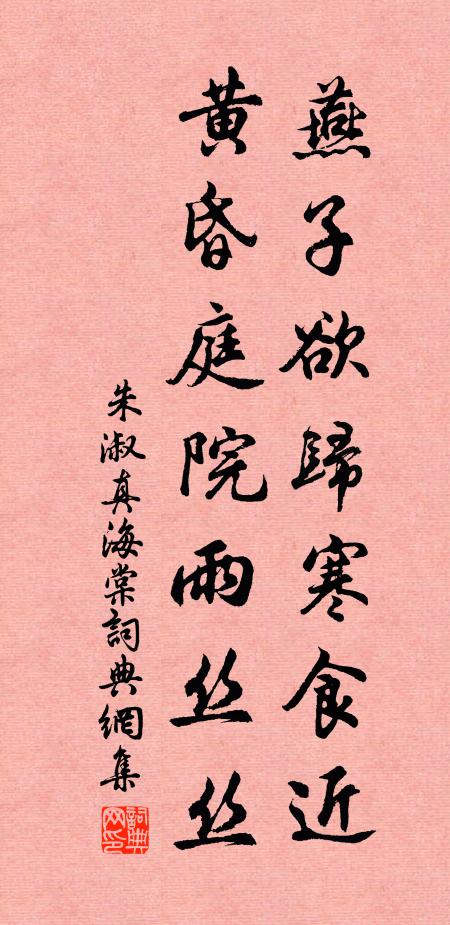 燕子欲歸寒食近
黄昏庭院雨丝丝
朱淑真海棠詞典網集
詞典网印